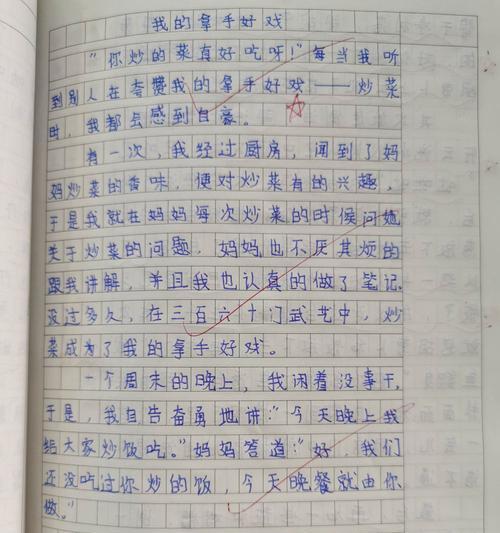 我的拿手好戏
“你炒的菜真好吃呀！”每当我听
到别人在夸赞我的拿手好戏——炒菜
时，我都会感到自豪。
有一次，我经过厨房，闻到了妈
妈炒菜的香味，便对炒菜有的兴趣，
于是我就在妈妈每次炒菜的时候问她
关于炒菜的问题，妈妈也不厌其烦的
跟我讲解，并且我也认真的做了笔记，
没过多久，在三百六十门武艺中，炒
菜成为了我的拿手好戏。
一个周末的晚上，我闲着没事干，
于是，我自告奋勇地讲：“今天晚上我
给大家炒饭吃。”妈妈答道：“好，我们
还没吃过你炒的饭，今天晚餐就由你
做。”